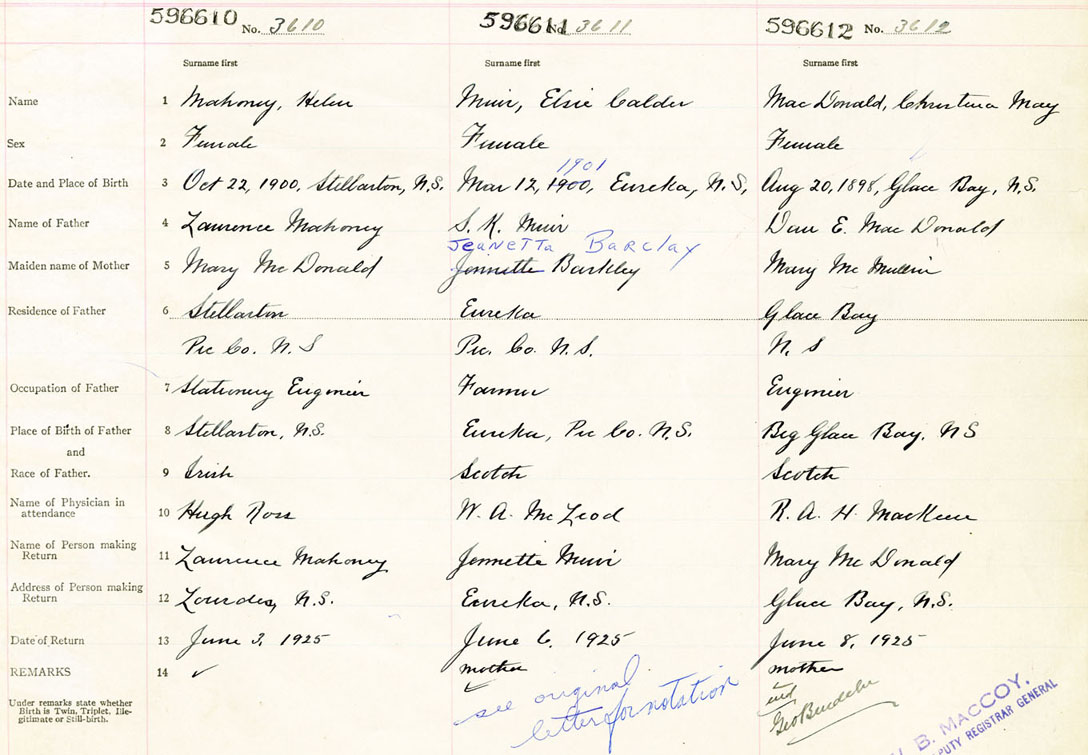 596610 No. 3610 596611 No. 3611 596612 No. 3612
Surname first Surname first Surname first
Name 1 Mahoney, Helen Muir, Elsie Calder Mac Donald, Christina May
Sex 2 Female Female Female
1901
Date and Place of Birth 3 Oct 22, 1900, Stellarton, N.S. Mar 12, 1900, Eureka, N.S, Aug 20, 1898, Glace Bay, N.S.
Name of Father 4 Laurence Mahoney S. K. Muir Dan E. Mac Donald
Jeanetta Barclay
Maiden name of Mother 5 Mary Mc Donald Jennette Barkley Mary Mc Mullin
Residence of Father 6 Stellarton Eureka Glace Bay
Pic Co. N. S Pic. Co. N. S. N. S
Occupation of Father 7 Stationery Enginier Farmer Enginier
Place of Birth of Father 8 Stellarton, N.S. Eureka, Pic Co. N.S. Big Glace Bay, NS
and
Race of Father. 9 Irish Scotch Scotch
Name of Physician in
attendance 10 Hugh Ross W. A. Mc Leod R. A. H. MacKeen
Name of Person making
Return 11 Laurence Mahoney Jennette Muir Mary Mc Donald
Address of Person making
Return 12 Lourdes, N.S. Eureka, N.S. Glace Bay, N.S.
Date of Return 13 June 3, 1925 June 6, 1925 June 8, 1925
REMARKS 14 ✓ mother mother
Under remarks state whether
Birth is Twin, Triplet, Ille-
gitimate or Still-birth.
see original
letter for notation
B. MACCOY,
PUTY REGISTRAR GENERAL